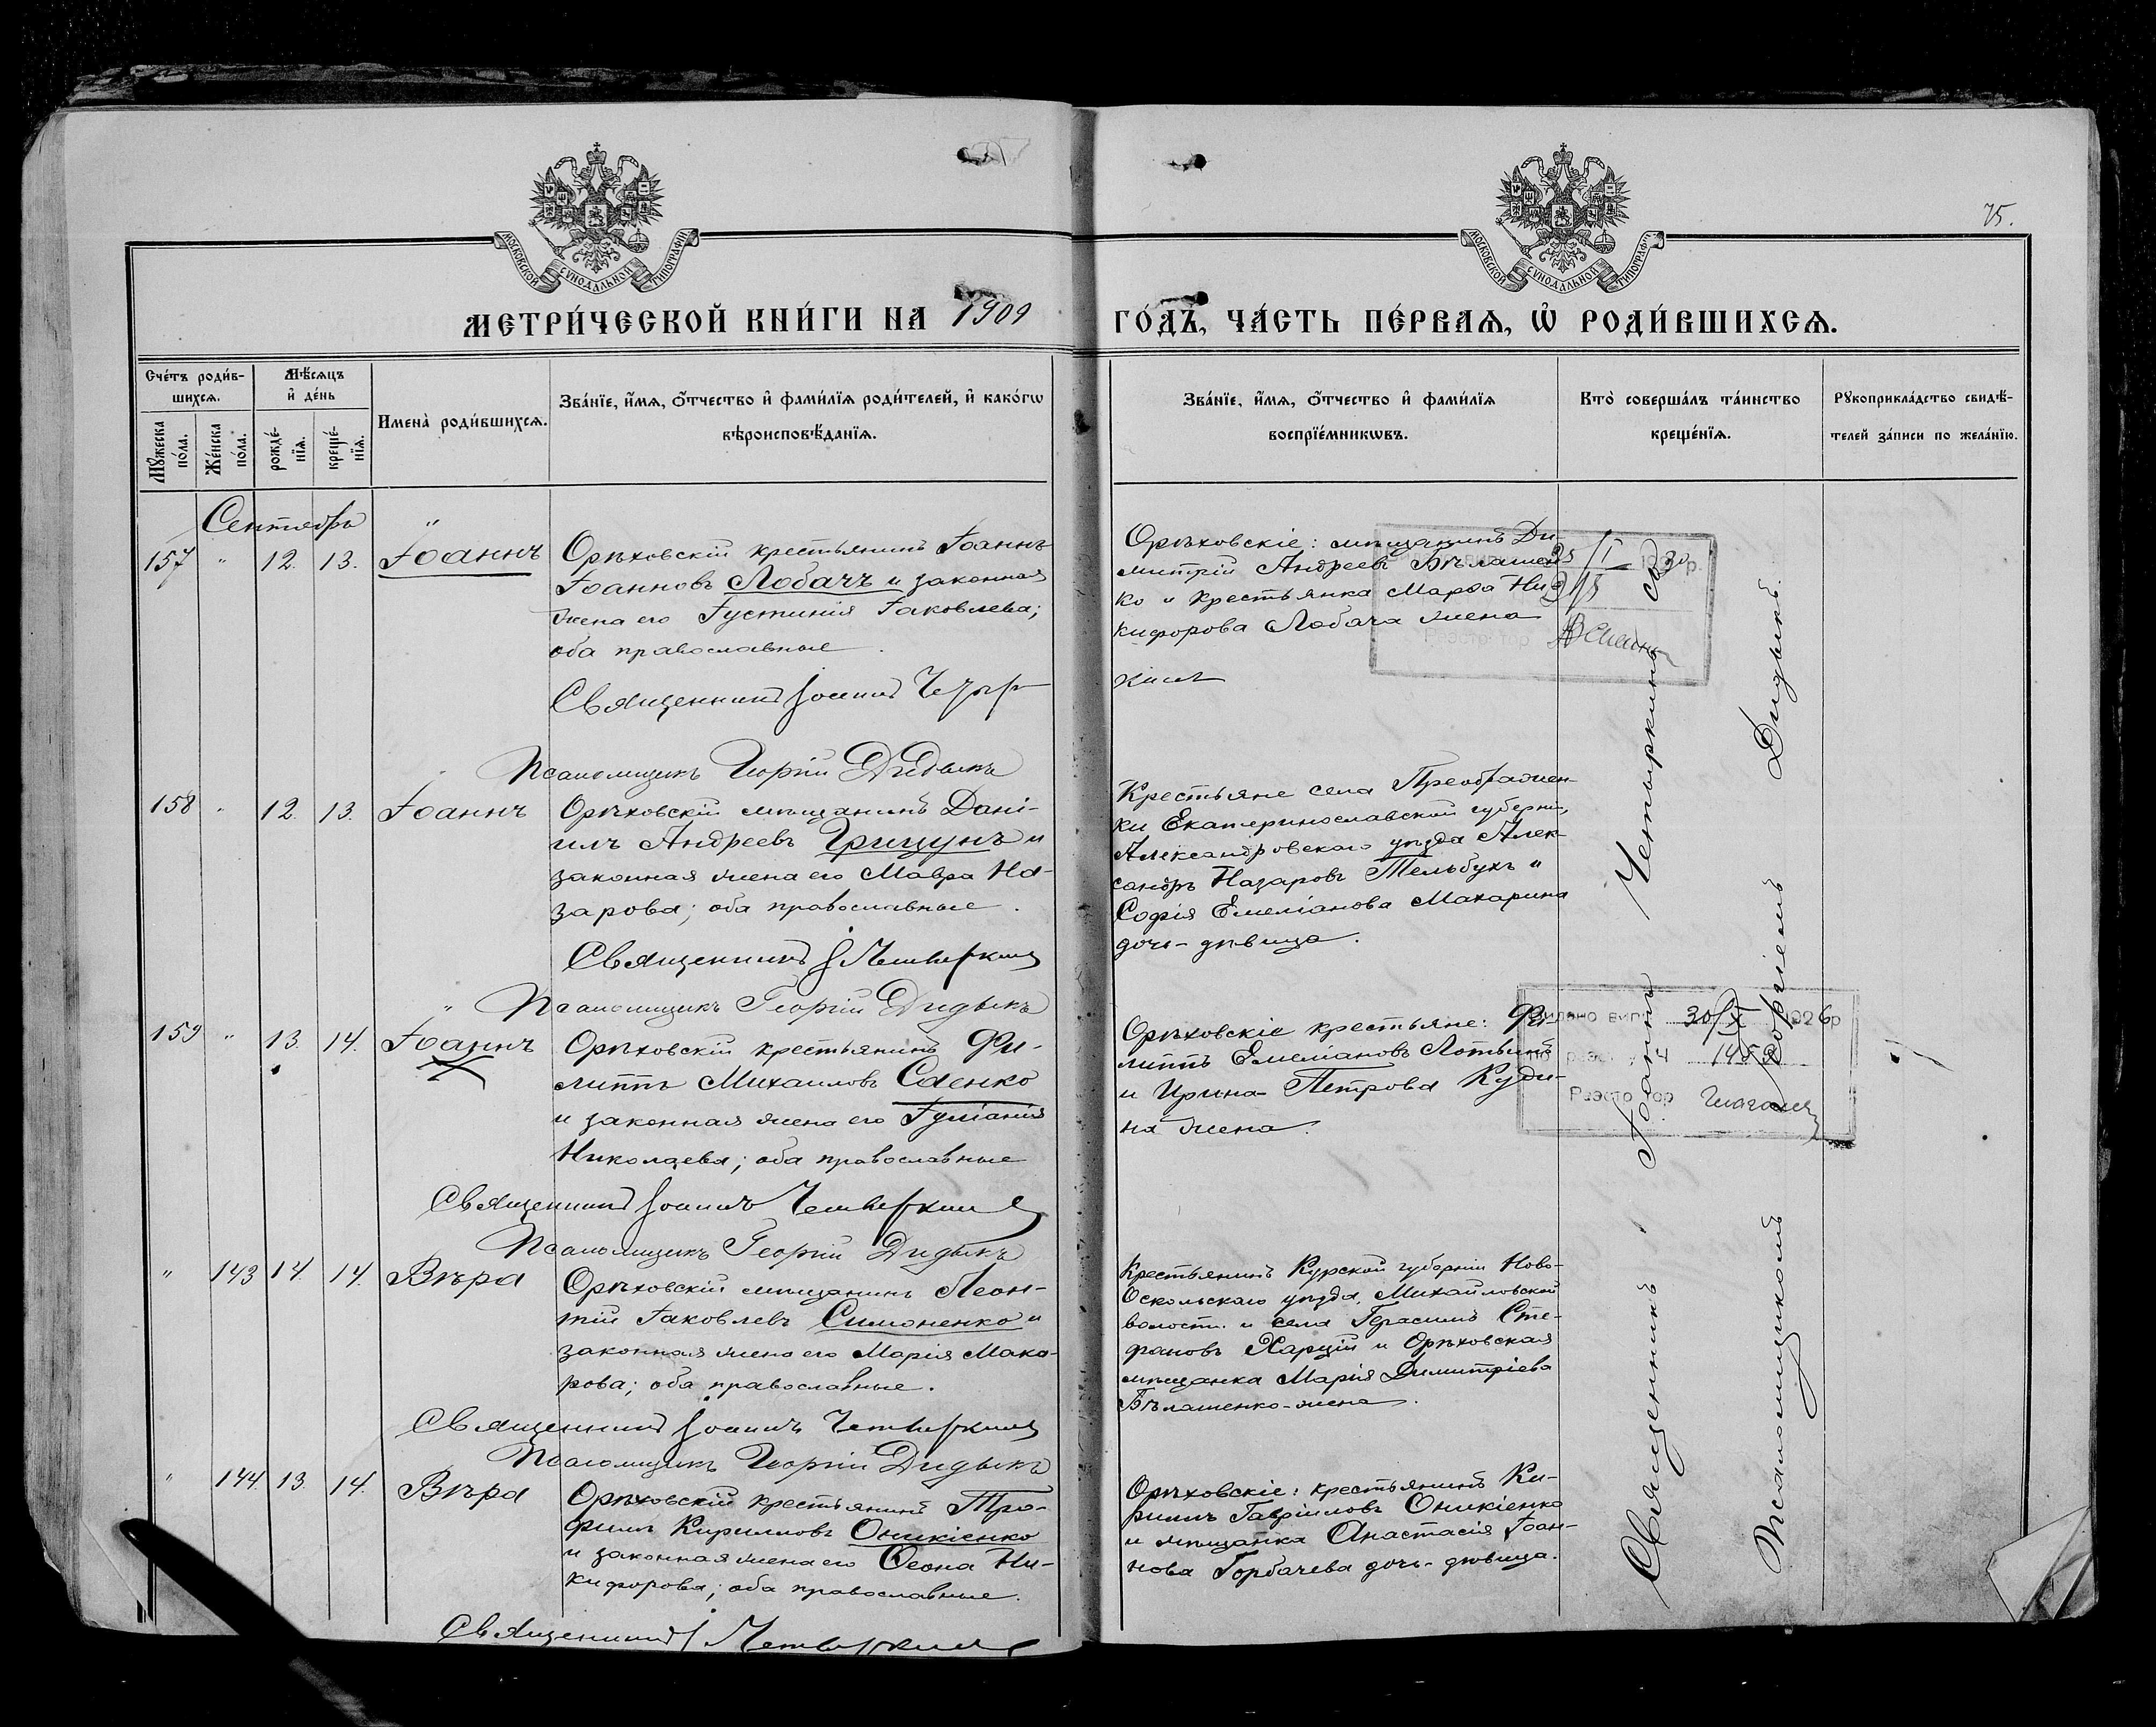 75.
МОСКОВСКОЙ СѴНОДАЛЬНОЙ ТИПОГРАФІИ
МОСКОВСКОЙ СѴНОДАЛЬНОЙ ТИПОГРАФІИ
МЕТРИ́ЧЕСКОЙ КНИ́ГИ НА 1909 ГО́ДЪ, ЧА́СТЬ ПЕ́РВАѦ, Ѡ҆ РОДИ́ВШИХСѦ.
Сче́тъ роди́в-
шихсѧ.
Мꙋ́жеска по́ла.
Же́нска по́ла.
Мѣ́сѧцъ
и҆ де́нь
рожде́-
нїѧ.
креще́-
нїѧ.
Имена̀ роди́вшихсѧ.
Зва́нїе, и҆́мѧ, ѻ҆́тчество и҆ фами́лїѧ роди́телей, и҆ како́гѡ
вѣроисповѣ́данїѧ.
Зва́нїе, и҆́мѧ, ѻ҆́тчество и҆ фами́лїѧ
воспрїе́мникѡвъ.
Кто̀ соверша́лъ та́инство
креще́нїѧ.
Рꙋкоприкла́дство свидѣ́-
телей за́писи по жела́нїю.
Сентябрь
157 " 12. 13. Іоаннъ
Орѣховскій крестьянинъ Іоаннъ
Іоанновъ Лобачъ и законная
жена его Іустинія Іаковлева;
оба православные.
Священникъ Іоаннъ
Псаломщикъ Георгій Дидыкъ
Орѣховскіе: мѣщанинъ Ди-
митрій Андреевъ Бѣлашен-
ко и крестьянка Марѳа Ни-
кифорова Лобача жена
158 " 12. 13. Іоаннъ
Орѣховскій мѣщанинъ Дані-
илъ Андреевъ Грицунъ и
законная жена его Мавра На-
зарова; оба православные.
Священникъ І Четыркинъ
Псаломщикъ Георгій Дидыкъ
Крестьяне села Преображен-
ки Екатеринославской губерніи,
Александровскаго уѣзда Алек-
сандръ Назаровъ Тельбухъ и
Софія Емеліанова Макарина
дочь-дѣвица.
159 " 13. 14. Іоаннъ
Орѣховскій крестьянинъ Фи-
липпъ Михаиловъ Саенко
и законная жена его Іуліанія
Николаева; оба православные
Священникъ Іоаннъ Четыркинъ
Псаломщикъ Георгій Дидыкъ
Орѣховскіе крестьяне: Фи-
липпъ Емеліановъ Лотышъ
и Ирина Петрова Куди-
на жена.
30/X 1926р
Реэстратор
" 143 14. 14. Вѣра
Орѣховскій мѣщанинъ Леон-
тій Іаковлевъ Симоненко и
законная жена его Марія Мака-
рова; оба православные.
Священникъ Іоаннъ Четыркинъ
Псаломщикъ Георгій Дидыкъ
Крестьянинъ Курской губерніи Ново-
Оскольскаго уѣзда, Михайловской
волости и села Герасимъ Сте-
фановъ Харцій и Орѣховская
мѣщанка Марія Димитріева
Бѣлашенко-жена.
" 144 13. 14. Вѣра
Орѣховскій крестьянинъ Тро-
фимъ Кирилловъ Оникіенко
и законная жена его Ѳеона Ни-
кифорова; оба православные.
Священникъ І Четыркинъ
Орѣховскіе: крестьянинъ Ки-
риллъ Гавріиловъ Оникіенко
и мѣщанка Анастасія Іоан-
нова Горбачева дочь-дѣвица.
Священникъ Іоаннъ Четыркинъ съ
Псаломщикомъ Георгіемъ Дидыкъ.